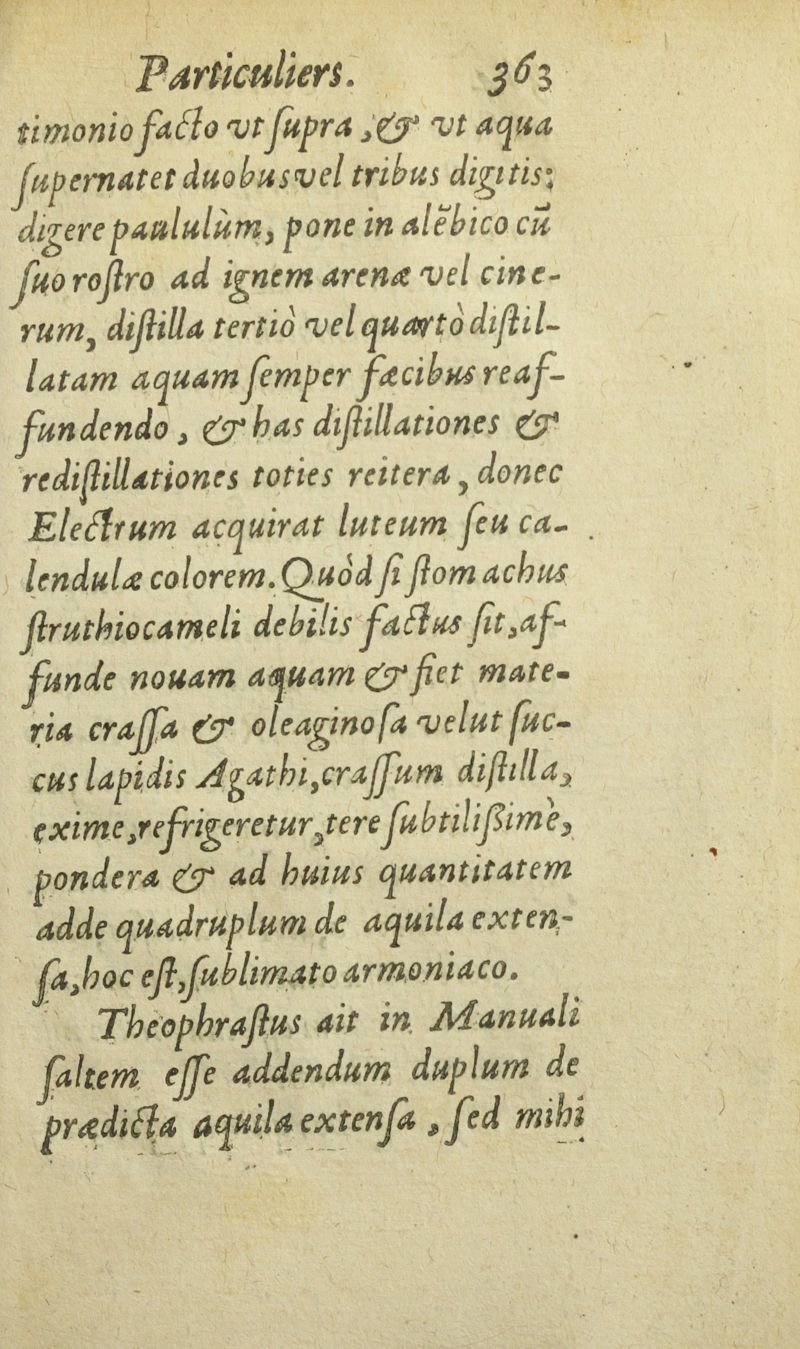 Particuliers. 363
timonio facto vt ſupra, & vt aqua
ſupernatet duobus vel tribus digitis;
digere paululùm, pone in alẽbico cũ
ſuo roſtro ad ignem arenæ vel cine-
rum, diſtilla tertiò vel quartò diſtil-
latam aquam ſemper fæcibus reaf-
fundendo, & has diſtillationes &
rediſtillationes toties reitera, donec
Electrum acquirat luteum ſeu ca-
lendulæ colorem. Quòd ſi ſtomachus
ſtruthiocameli debilis factus ſit, af-
funde nouam aquam & fiet mate-
ria craſſa & oleaginoſa velut ſuc-
cus lapidis Agathi, craſſum diſtilla,
exime, refrigeretur, tere ſubtiliſsimè,
pondera & ad huius quantitatem
adde quadruplum de aquila exten-
ſa, hoc eſt, ſublimato armoniaco.
Theophraſtus ait in Manuali
ſaltem eſſe addendum duplum de
prædicta aquila extenſa, ſed mihi